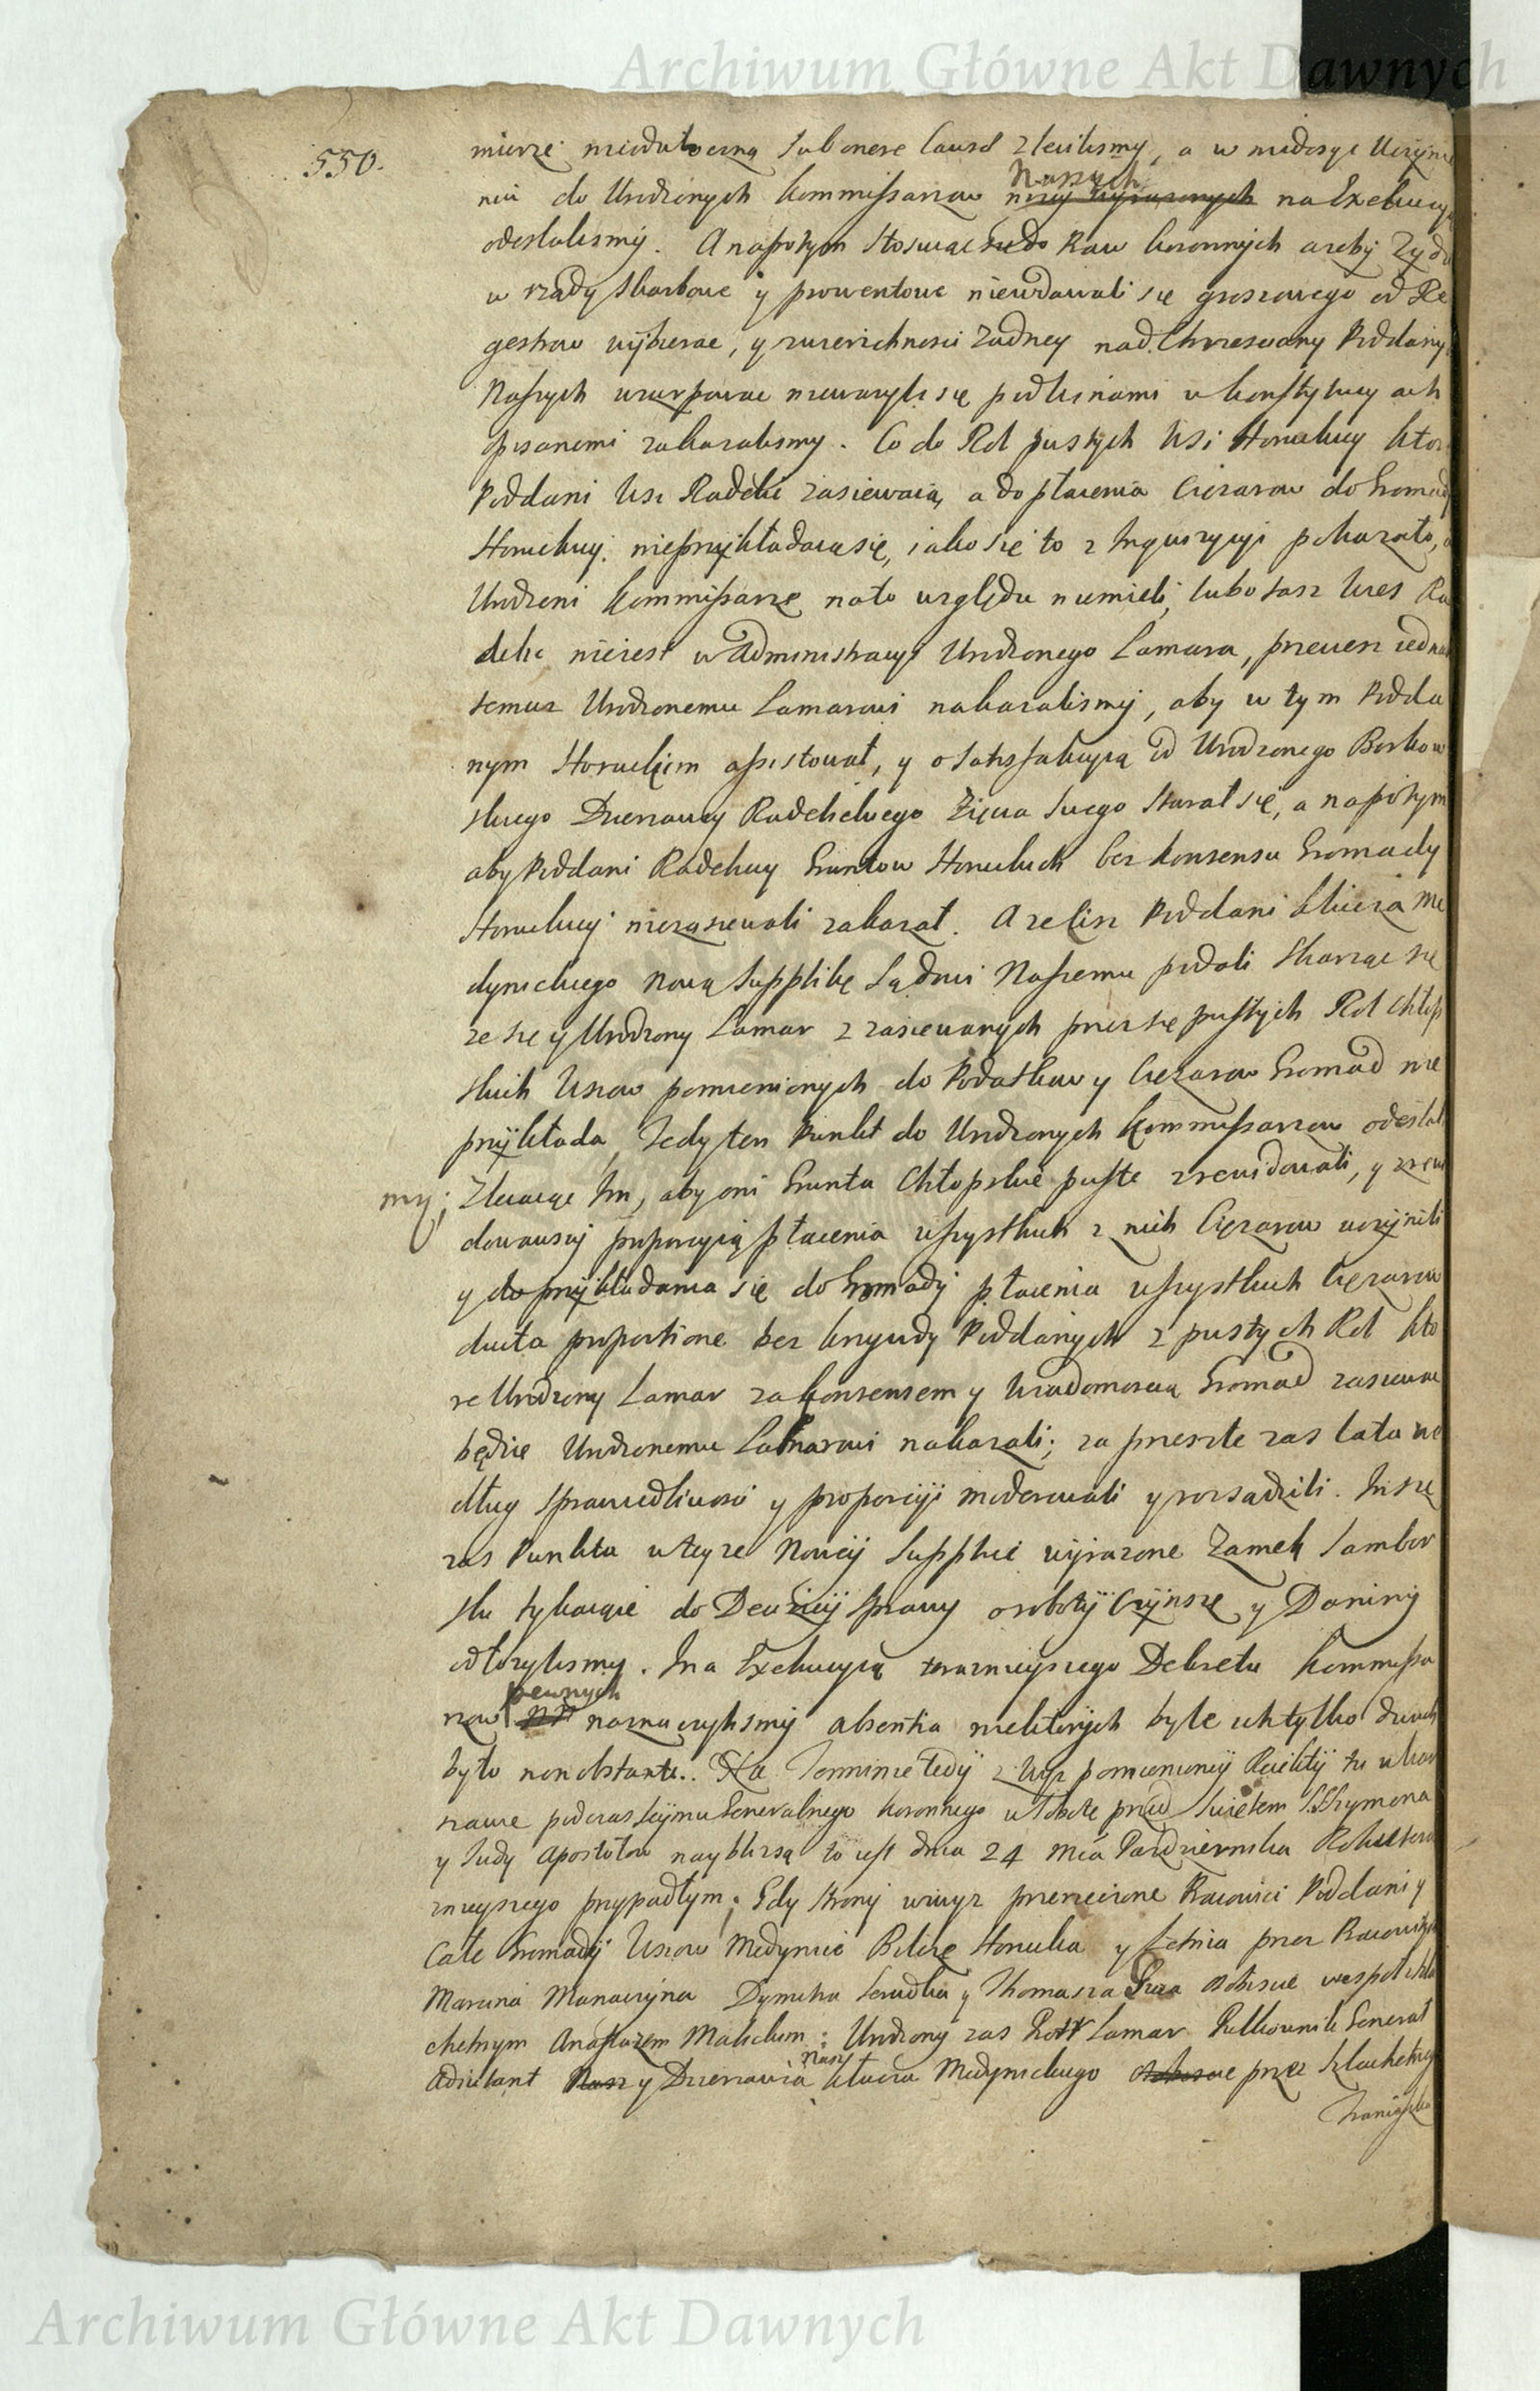 Archiwum Główne Akt Dawnych
550.
mierze nieodwłoczną sub onere causæ zleciliśmy, a w niedosyc Uczynie
niu do Urodzonych Kommissarzow Naszych niżey wyrazonych na Exekucyą
odesłalismy. A napotym stosuiąc się do Praw koronnych azeby Zydzi
w rządy skarbowe y prowentowe niewdawali się groszowego od Re
gestrow wybierac, y zwierzchnosci zadney nad Chrzesciany Poddanymi
Naszych uzurpowac niewazyli się pod winami w konstytucyach
opisanemi zakazalismy. Co do Rol pustych Wsi Horucky ktore
Poddani Wsi Radelic zasiewaią, a do płacenia Cięzarow do Gromady
Horuckiej nieprzykładaią się, iako się to z Inquizycyi pokazało, a
Urodzeni Kommissarze na to względu niemieli, lubo tasz Wies Ra
delic nieiest w Administracyi Urodzonego Lamara, przeciesz iednak
temuz Urodzonemu Lamarowi nakazalismy, aby w tym Podda
nym Horuckim assistował, y o satisfakcyią od Urodzonego Borkow
skiego Dzierzawcy Radelickiego Zięcia swego starał się, a napotym
aby Poddani Radeliccy Gruntow Horuckich bez konsensu Gromady
Horuckiej niezasiewali zakazał. A ze ciz Poddani klucza Me
dynickiego nową supplikę Sądowi Naszemu podali skarząc się
ze się y Urodzony Lamar z zasiewanych przez się pustych Rol chłop
skich Wsiow pomienionych do Podatkow y Cięzarow Gromad nie
przykłada, Tedy ten Punkt do Urodzonych Kommissarzow odesłali
my; Zlecaiąc Im, aby oni Grunta Chłopskie puste zrewidowali, y zrewi
dowawszy proporcyią płacenia wszystkich z nich Cięzarow uczynili
y do przykładania się do Gromady płacenia wszystkich Cięzarow
ducta proportione bez krzywdy Poddanych z pustych Rol kto
re Urodzony Lamar za konsensem y wiadomoscią Gromad zasiewac
będzie Urodzonemu Lamarowi nakazali; za przeszłe zas lata we
dług sprawiedliwosci y proporcyi moderowali y rozsądzili. Insze
zas Punkta w teyze Nowey Supplice wyrazone Zamek Sambor
ski tykaiące do Decyzyi sprawy o roboty Czynsze y Daniny
odłozylismy. Ina Exekucyą teraznieyszego Dekretu Kommissa
rzow pewnych naznaczylismy absentia niektorych byle ich tylko dwoch
było non obstante. Na Terminie tedy z wysz pomienioney Rellacyi tu w War
szawie podczas Seymu Generalnego koronnego w Sobotę przed Swiętem S. Szymona
y Judy Apostołow naybliszą to iest dnia 24 mca Pazdziernika Roku teraz
znieyszego przypadłym; Gdy strony wwysz przerzeczone Pracowici Poddani y
Całe Gromady Wsiow Medynice Bilcze Horucka y Letnia przez Pracowitych
Marcina Manaczyna Dymitra Serudka y Thomasza Guza Osobiscie wespoł szla
chetnym Anastazem Malickim: Urodzony zas Piotr Lamar Pułkownik Generał
Adiutant y Dzierzawca nasz klucza Medynickiego przez Szlachetnego
Franciszka
Archiwum Główne Akt Dawnych